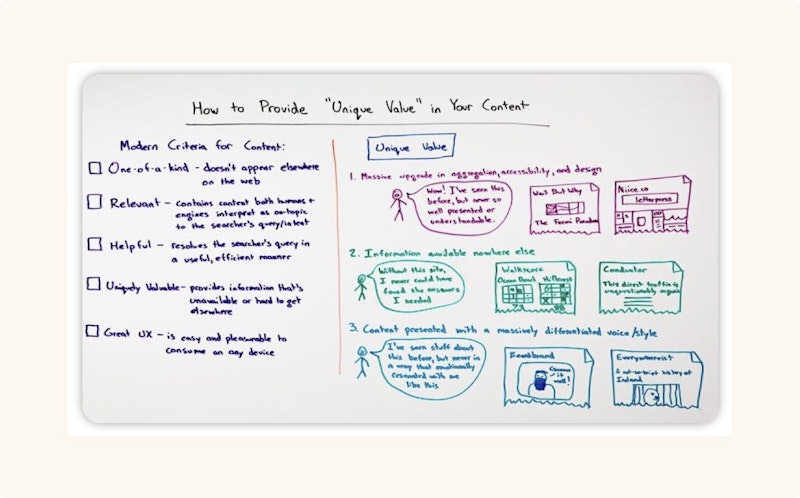 How to Provide "Unique Value" in Your Content
Modern Criteria for Content:
One-of-a-kind - doesn't appear elsewhere
on the web
Relevant - contains content both humans +
engines interpret as on-topic
to the searcher's query/intent
Helpful - resolves the searcher's query in
a useful, efficient manner
Uniquely Valuable - provides information that's
unavailable or hard to get
elsewhere
Great UX - is easy and pleasurable to
consume on any device
Unique Value
1. Massive upgrade in aggregation, accessibility, and design
Wow! I've seen this
before, but never so
well presented or
understandable.
Wait But Why
The Fermi Paradox
Niice.co
letterpress
2. Information available nowhere else
Without this site,
I never could have
found the answers
I needed
Walkscore
Ocean Beach
Conductor
This direct traffic is
unquestionably organic
3. Content presented with a massively differentiated voice/style
I've seen stuff about
this before, but never in
a way that emotionally
resonated with me
like this
Beardbrand
it
well!
Everywhereist
A not-so-brief history of
Ireland